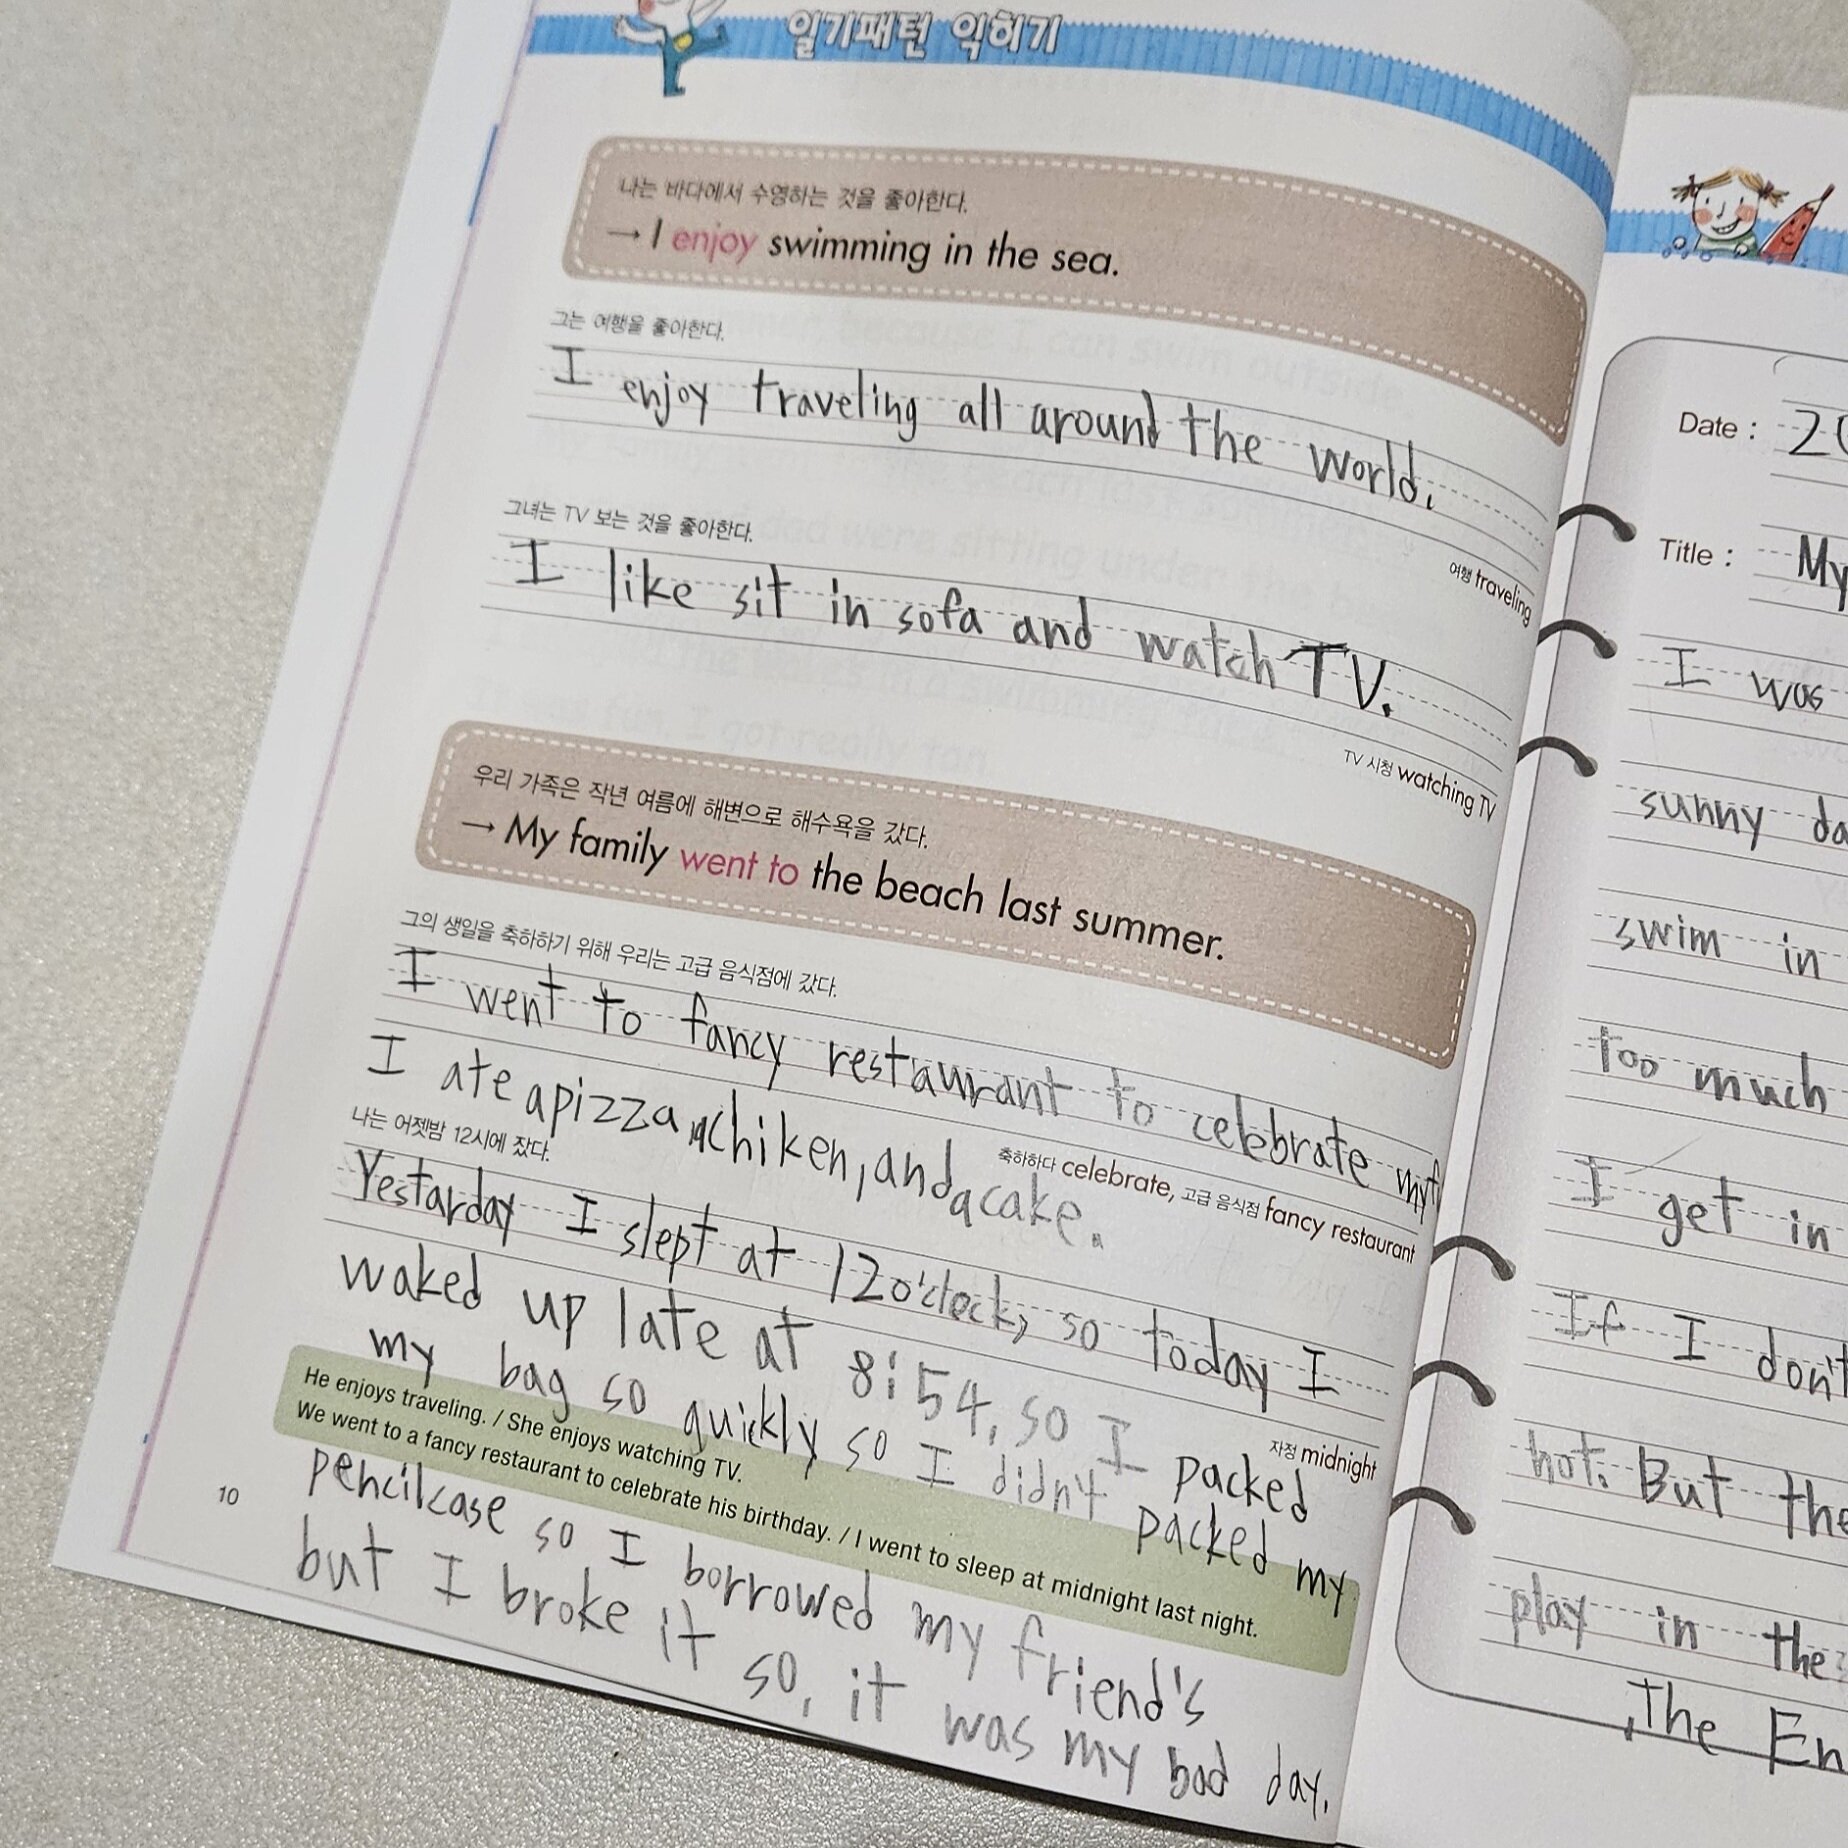 일기패턴 익히기
나는 바다에서 수영하는 것을 좋아한다.
→ I enjoy swimming in the sea.
그는 여행을 좋아한다.
I enjoy traveling all around the world.
여행 traveling
그녀는 TV 보는 것을 좋아한다.
I like sit in sofa and watch TV.
TV 시청 watching TV
우리 가족은 작년 여름에 해변으로 해수욕을 갔다.
→ My family went to the beach last summer.
그의 생일을 축하하기 위해 우리는 고급 음식점에 갔다.
I went to fancy restaurant to celebrate
I ate a pizza, a chiken, and a cake.
축하하다 celebrate, 고급 음식점 fancy restaurant
나는 어젯밤 12시에 잤다.
Yestarday I slept at 12o'clock, so today I
waked up late at 8:54, so I packed
자정 midnight
my bag so quickly so I didn't packed my
He enjoys traveling. / She enjoys watching TV.
We went to a fancy restaurant to celebrate his birthday. / I went to sleep at midnight last night.
pencilcase so I borrowed my friend's
but I broke it so, it was my bad day.
10
Date : 20
Title : My
I was
sunny da
swim in
too much
I get in
If I don't
hot. But the
play in the
The En